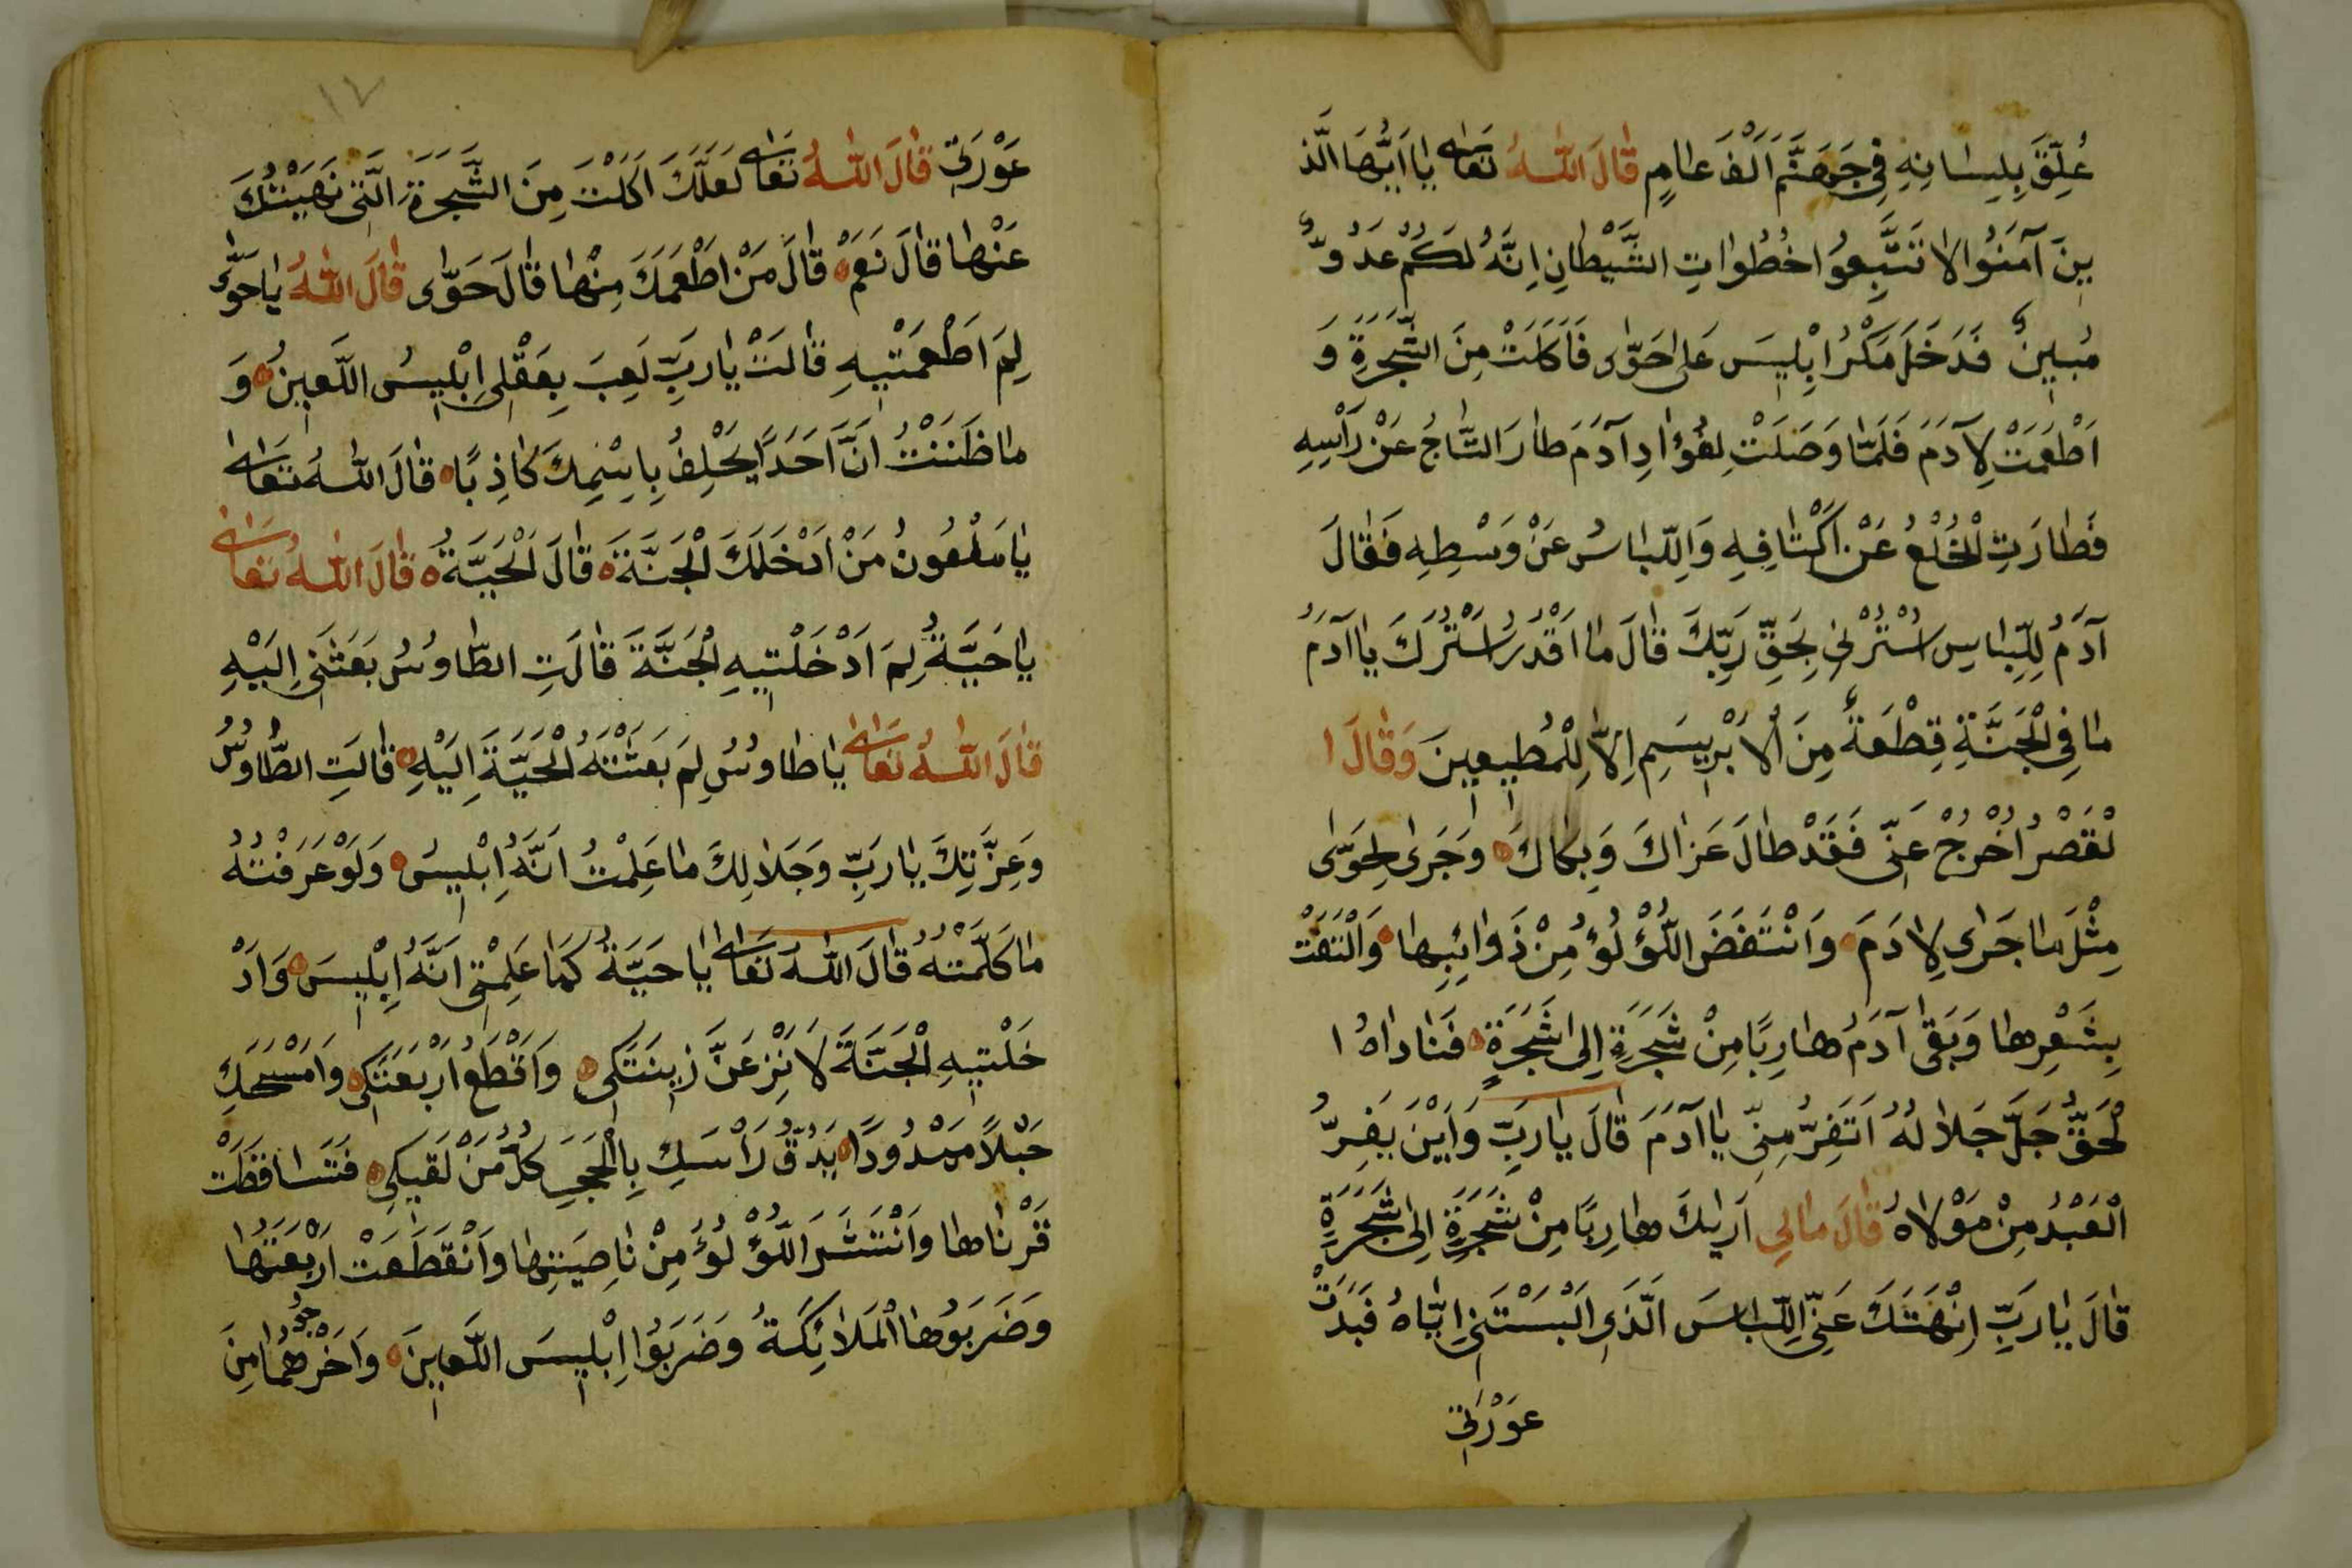 عُلِّقَ بِلِسٰانِهِ فِي جَهَنَّمَ اَلْفَ عٰامٍ قٰالَ اللّٰهُ تَعٰالٰى يٰا اَيُّهَا الَّذ
ينَ آمَنُوا لا تَتَّبِعُوا خُطُوٰاتِ الشَّيْطٰانِ اِنَّهُ لَكُمْ عَدُوٌّ
مُبِينٌ فَدَخَلَ مَكْرُ اِبْلِيسَ عَلٰى حَوّٰى فَاَكَلَتْ مِنَ الشَّجَرَةِ وَ
اَطْعَمَتْ لِآدَمَ فَلَمّٰا وَصَلَتْ لِفُؤٰادِ آدَمَ طٰارَ التّٰاجُ عَنْ رَأْسِهِ
فَطٰارَتِ الْخُلْعُ عَنْ اَكْتٰافِهِ وَاللِّبٰاسُ عَنْ وَسْطِهِ فَقٰالَ
آدَمُ لِلِّبٰاسِ اسْتُرْنِي بِحَقِّ رَبِّكَ قٰالَ مٰا اَقْدُرُ اسْتُرُكَ يٰا آدَمُ
مٰا فِي الْجَنَّةِ قِطْعَةٌ مِنَ الْاَبْرِيسَمِ اِلاّٰ لِلْمُطِيعِينَ وَقٰالَ ا
لْقَصْرُ اُخْرُجْ عَنِّي فَقَدْ طٰالَ عَزٰاكَ وَبِكٰاكَ وَجَرٰى لِحَوّٰى
مِثْلَ مٰا جَرٰى لِاٰدَمَ وَانْتَفَضَ اللُّؤْلُؤُ مِنْ ذَوٰائِبِهٰا وَالْتَفَتْ
بِشَعْرِهٰا وَبَقٰى آدَمُ هٰارِبًا مِنْ شَجَرَةٍ اِلٰى شَجَرَةٍ فَنٰادٰاهُ ا
لْحَقُّ جَلَّ جَلاٰلُهُ اَتَفِرُّ مِنِّي يٰا آدَمَ قٰالَ يٰا رَبِّ وَاَيْنَ يَفِرُّ
الْعَبْدُ مِنْ مَوْلاٰهُ قٰالَ مٰالِي اَرٰيكَ هٰارِبًا مِنْ شَجَرَةٍ اِلٰى شَجَرَةٍ
قٰالَ يٰا رَبِّ اِنْهَتَكَ عَنِّي اللِّبٰاسَ الَّذِي اَلْبَسْتَنِي اِيّٰاهُ فَبَدَتْ
عَوْرَتِي
١٢
عَوْرَتِي قٰالَ اللّٰهُ تَعٰالٰى لَعَلَّكَ اَكَلْتَ مِنَ الشَّجَرَةِ الَّتِي نَهَيْتُكَ
عَنْهٰا قٰالَ نَعَمْ قٰالَ مَنْ اَطْعَمَكَ مِنْهٰا قٰالَ حَوّٰى قٰالَ اللّٰهُ يٰا حَوّٰى
لِمَ اَطْعَمْتِيهِ قٰالَتْ يٰا رَبِّ لَعِبَ بِعَقْلِي اِبْلِيسُ اللَّعِينُ وَ
مٰا ظَنَنْتُ اَنَّ اَحَدًا يَحْلِفُ بِاسْمِكَ كٰاذِبًا قٰالَ اللّٰهُ تَعٰالٰى
يٰا مَلْعُونُ مَنْ اَدْخَلَكَ الْجَنَّةَ قٰالَ الْحَيَّةُ قٰالَ اللّٰهُ تَعٰالٰى
يٰا حَيَّةُ لِمَ اَدْخَلْتِيهِ الْجَنَّةَ قٰالَتِ الطّٰاوُسُ بَعَثَنِي اِلَيْهِ
قٰالَ اللّٰهُ تَعٰالٰى يٰا طٰاوُسُ لِمَ بَعَثْتَهُ الْحَيَّةَ اِلَيْهِ قٰالَتِ الطّٰاوُسُ
وَعِزَّتِكَ يٰا رَبِّ وَجَلاٰلِكَ مٰا عَلِمْتُ اَنَّهُ اِبْلِيسُ وَلَوْ عَرَفْتُهُ
مٰا كَلَّمْتُهُ قٰالَ اللّٰهُ تَعٰالٰى يٰا حَيَّةُ كَمٰا عَلِمْتِي اَنَّهُ اِبْلِيسَ وَاَدْ
خَلْتِيهِ الْجَنَّةَ لَاَنْزِعَنَّ زِينَتَكِي وَاَقْطَعُ اَرْبَعَتَكِي وَاَمْسَحَكِ
حَبْلاً مَمْدُودًا يَدُقُّ رَاْسَكِ بِالْحَجَرِ كُلُّ مَنْ لَقِيَكِي فَتَسٰاقَطَتْ
قَرْنٰاهٰا وَانْتَثَرَ اللُّؤْلُؤُ مِنْ نٰاصِيَتِهٰا وَانْقَطَعَتْ اَرْبَعَتُهٰا
وَضَرَبُوهٰا الْمَلاٰئِكَةُ وَضَرَبُوا اِبْلِيسَ اللَّعِينَ وَاَخْرَجُوهُمٰا مِنَ